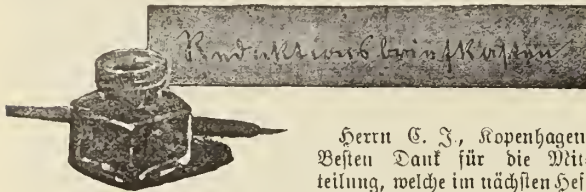 Redaktionsbriefkasten
Herrn C. J., Kopenhagen
Besten Dank für die Mit-
teilung, welche im nächsten Hef